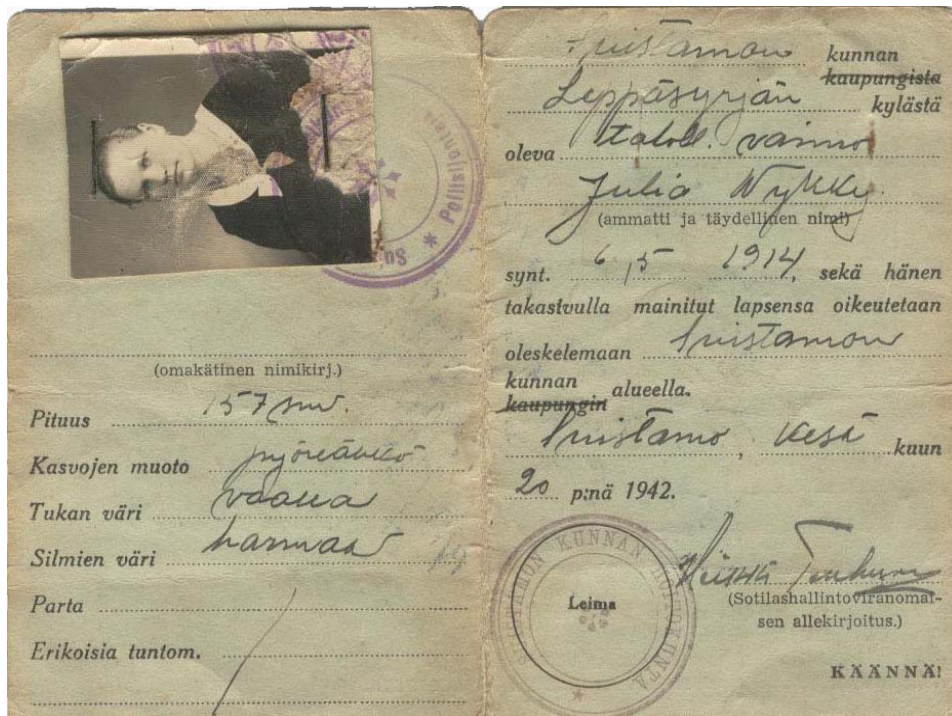 (omakätinen nimikirj.)
Pituus 157 sm.
Kasvojen muoto pyöreähkö
Tukan väri vaalea
Silmien väri harmaa
Parta
Erikoisia tuntom.
Poliisi
Suistamon kunnan
kaupungista
Leppäsyrjän kylästä
oleva taloll. vaimo
Julia Nykky.
(ammatti ja täydellinen nimi)
synt. 6/5 1914, sekä hänen
takasivulla mainitut lapsensa oikeutetaan
oleskelemaan Suistamon
kunnan
kaupungin alueella.
Suistamo, kesä kuun
20 p:nä 1942.
SUISTAMON KUNNAN HOITOKUNTA
Leima
(Sotilashallintoviranomai-
sen allekirjoitus.)
KÄÄNNÄ!